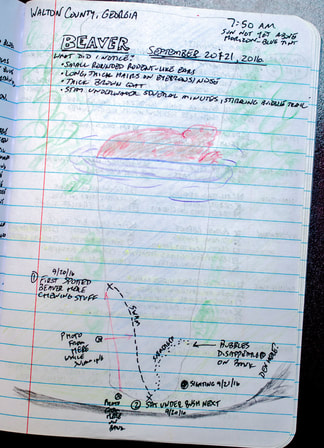 WALTON COUNTY, GEORGIA
7:50 AM
SUN NOT YET ABOVE
HORIZON - BLUE TINT
BEAVER
SEPTEMBER 20 & 21, 2016
WHAT DID I NOTICE?
• SMALL ROUNDED RODENT-LIKE EARS
• LONG, THICK HAIRS ON EYEBROWS/NOSE
• THICK BROWN COAT
• STAY UNDERWATER SEVERAL MINUTES, STIRRING BUBBLE TRAIL
9/20/16
① FIRST SPOTTED
BEAVER HERE
CHEWING STUFF
SWAM
PHOTO
FROM
HERE
WHILE
BUBBLES
DISAPPEARED
ON BANK
DEN HERE?
SIGHTING 9/21/16
② SAT UNDER BUSH NEXT
9/20/16
PHOTO
FROM
HERE
ON
BANK